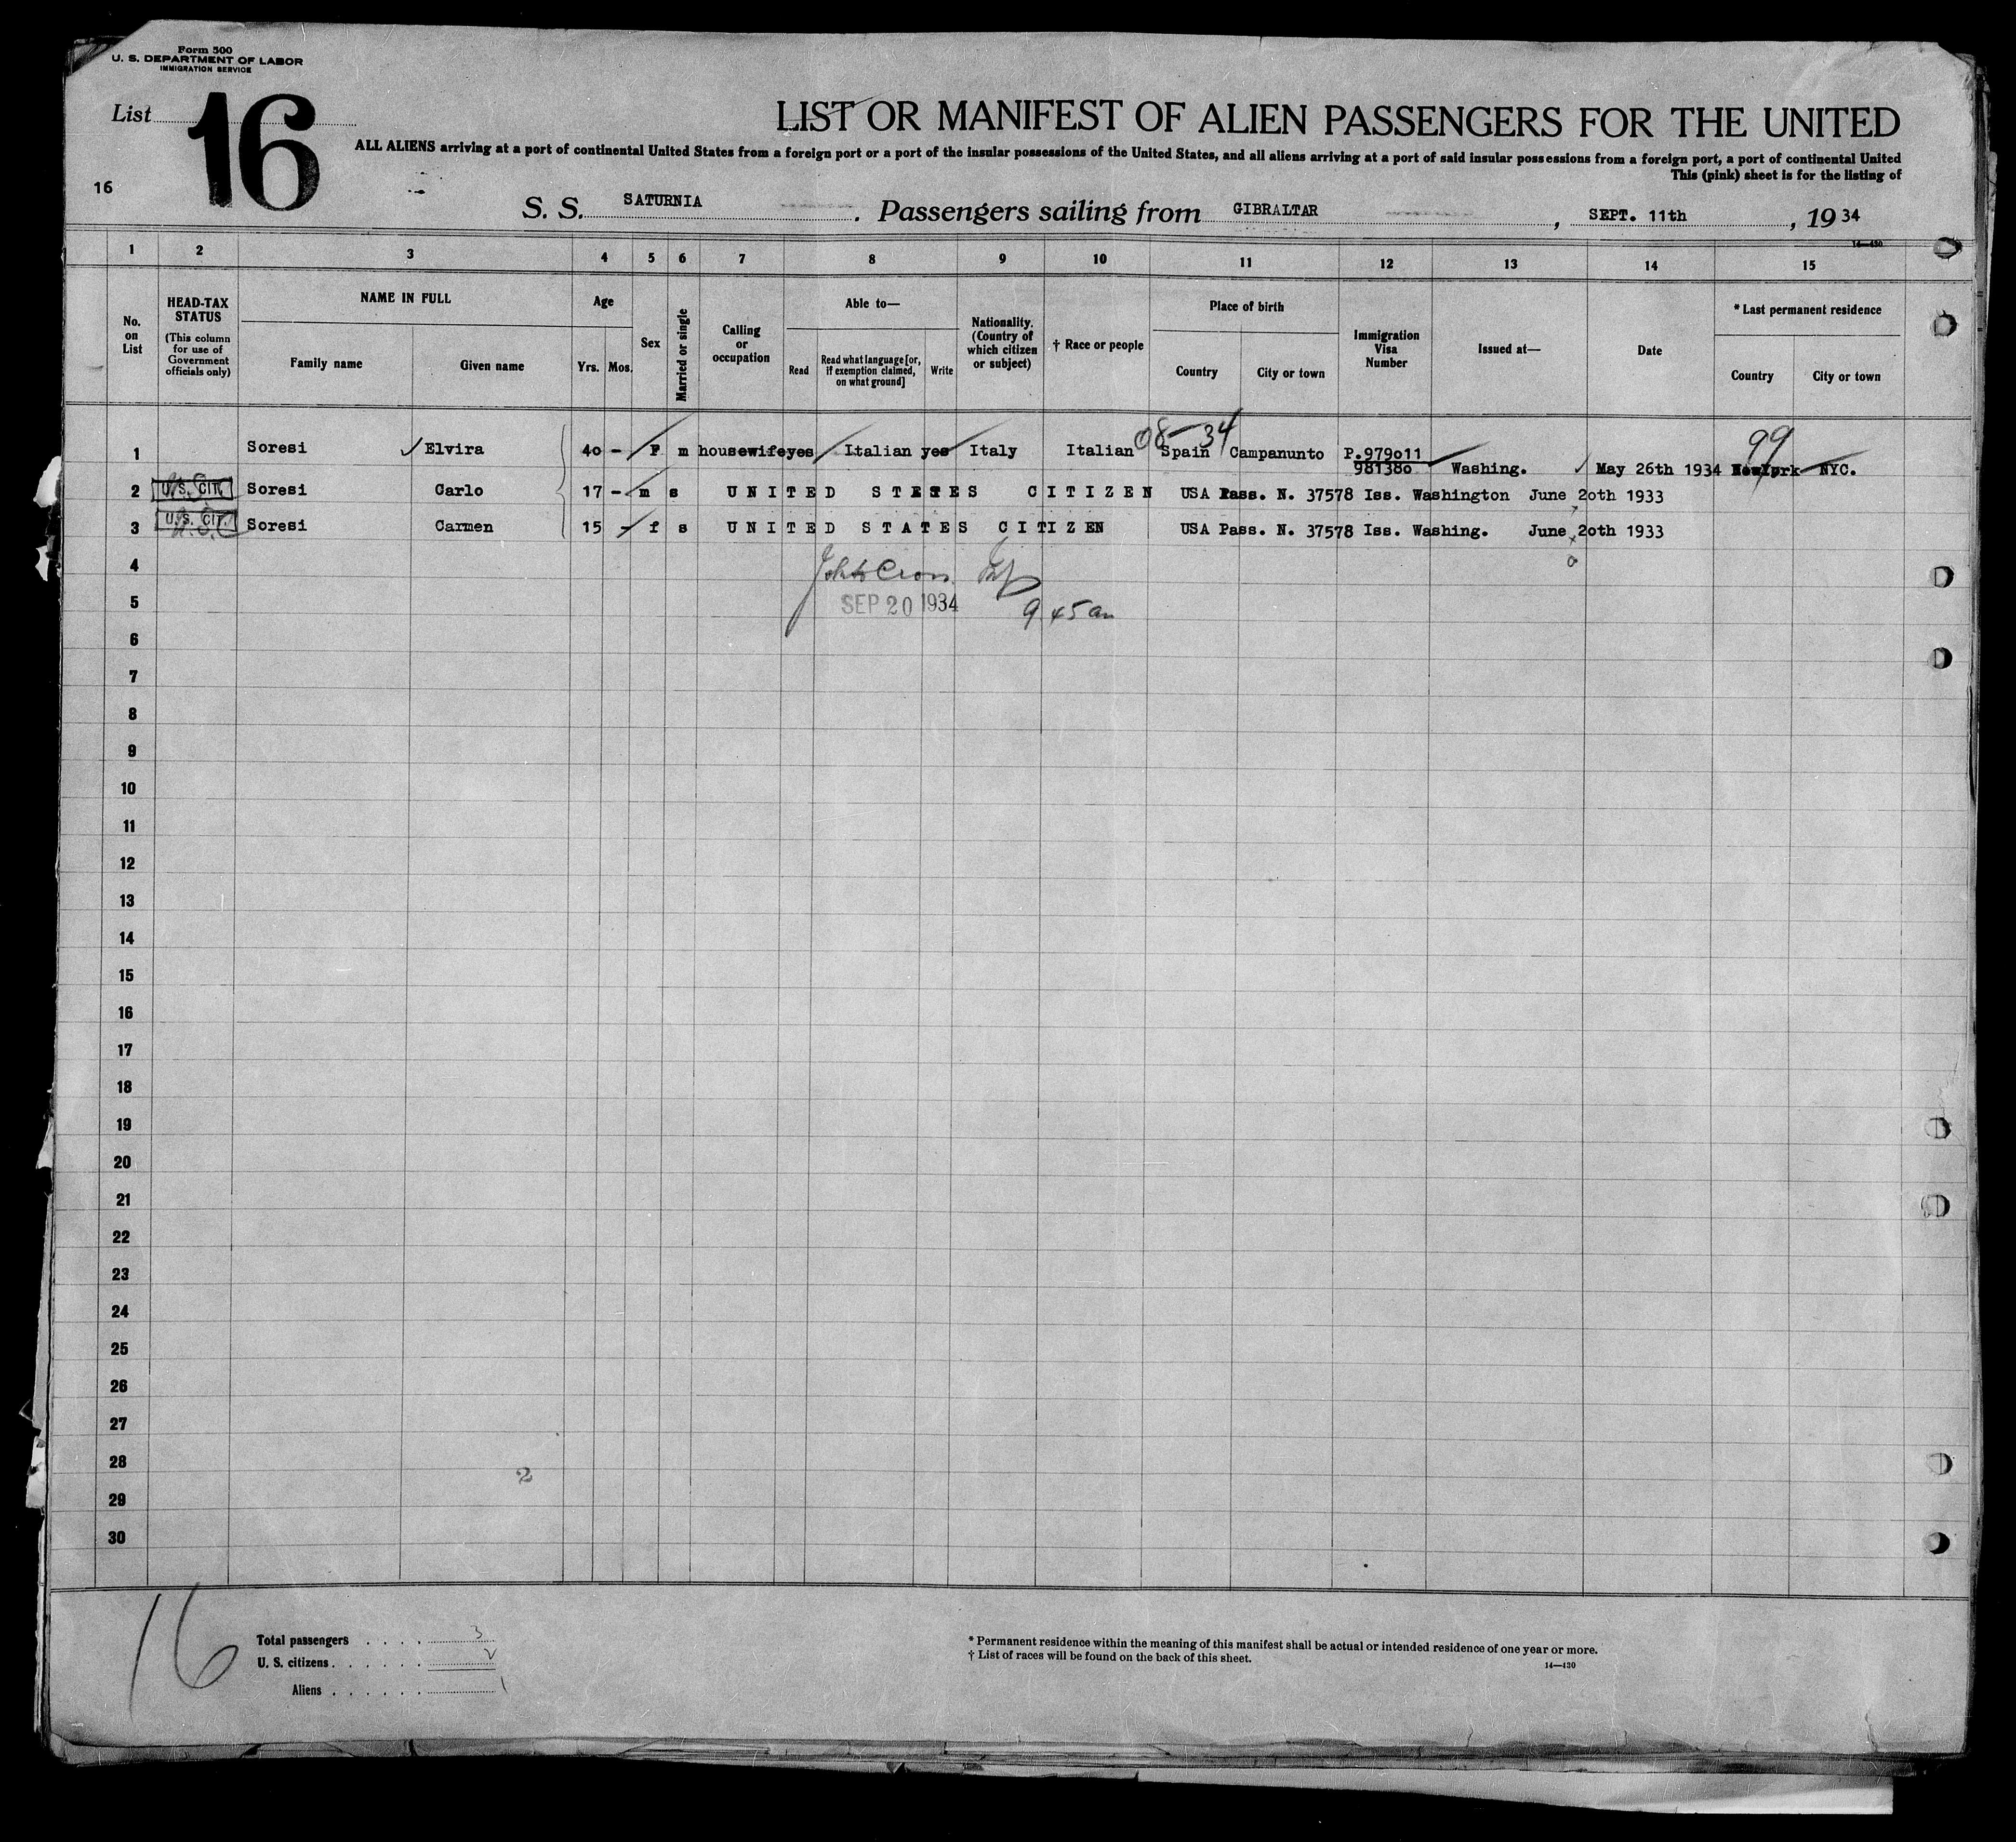 Form 500
U. S. DEPARTMENT OF LABOR
IMMIGRATION SERVICE
List 16
LIST OR MANIFEST OF ALIEN PASSENGERS FOR THE UNITED
ALL ALIENS arriving at a port of continental United States from a foreign port or a port of the insular possessions of the United States, and all aliens arriving at a port of said insular possessions from a foreign port, a port of continental United
This (pink) sheet is for the listing of
16
S. S. SATURNIA . Passengers sailing from GIBRALTAR , SEPT. 11th , 19 34
14—430
1 2 3 4 5 6 7 8 9 10 11 12 13 14 15
No. on List
HEAD-TAX STATUS
(This column for use of Government officials only)
NAME IN FULL
Family name
Given name
Age
Yrs. Mos.
Sex
Married or single
Calling or occupation
Able to—
Read
Read what language [or, if exemption claimed, on what ground]
Write
Nationality. (Country of which citizen or subject)
† Race or people
Place of birth
Country
City or town
Immigration Visa Number
Issued at—
Date
* Last permanent residence
Country
City or town
08-34
99
1 Soresi Elvira 4o - F m housewife yes Italian yes Italy Italian Spain Campanunto P.979o11 Washing. May 26th 1934 NYC.
98138o
2 U.S. CIT. Soresi Carlo 17 - m s UNITED STATES CITIZEN USA Pass. N. 37578 Iss. Washington June 2oth 1933
3 U.S. CIT. Soresi Carmen 15 - f s UNITED STATES CITIZEN USA Pass. N. 37578 Iss. Washing. June 2oth 1933
4
SEP 20 1934
5
9 45 am
6
7
8
9
10
11
12
13
14
15
16
17
18
19
20
21
22
23
24
25
26
27
28
2
29
30
16
Total passengers . . . . 3
U. S. citizens . . . . . . 2
Aliens . . . . . . 1
* Permanent residence within the meaning of this manifest shall be actual or intended residence of one year or more.
† List of races will be found on the back of this sheet.
14—430